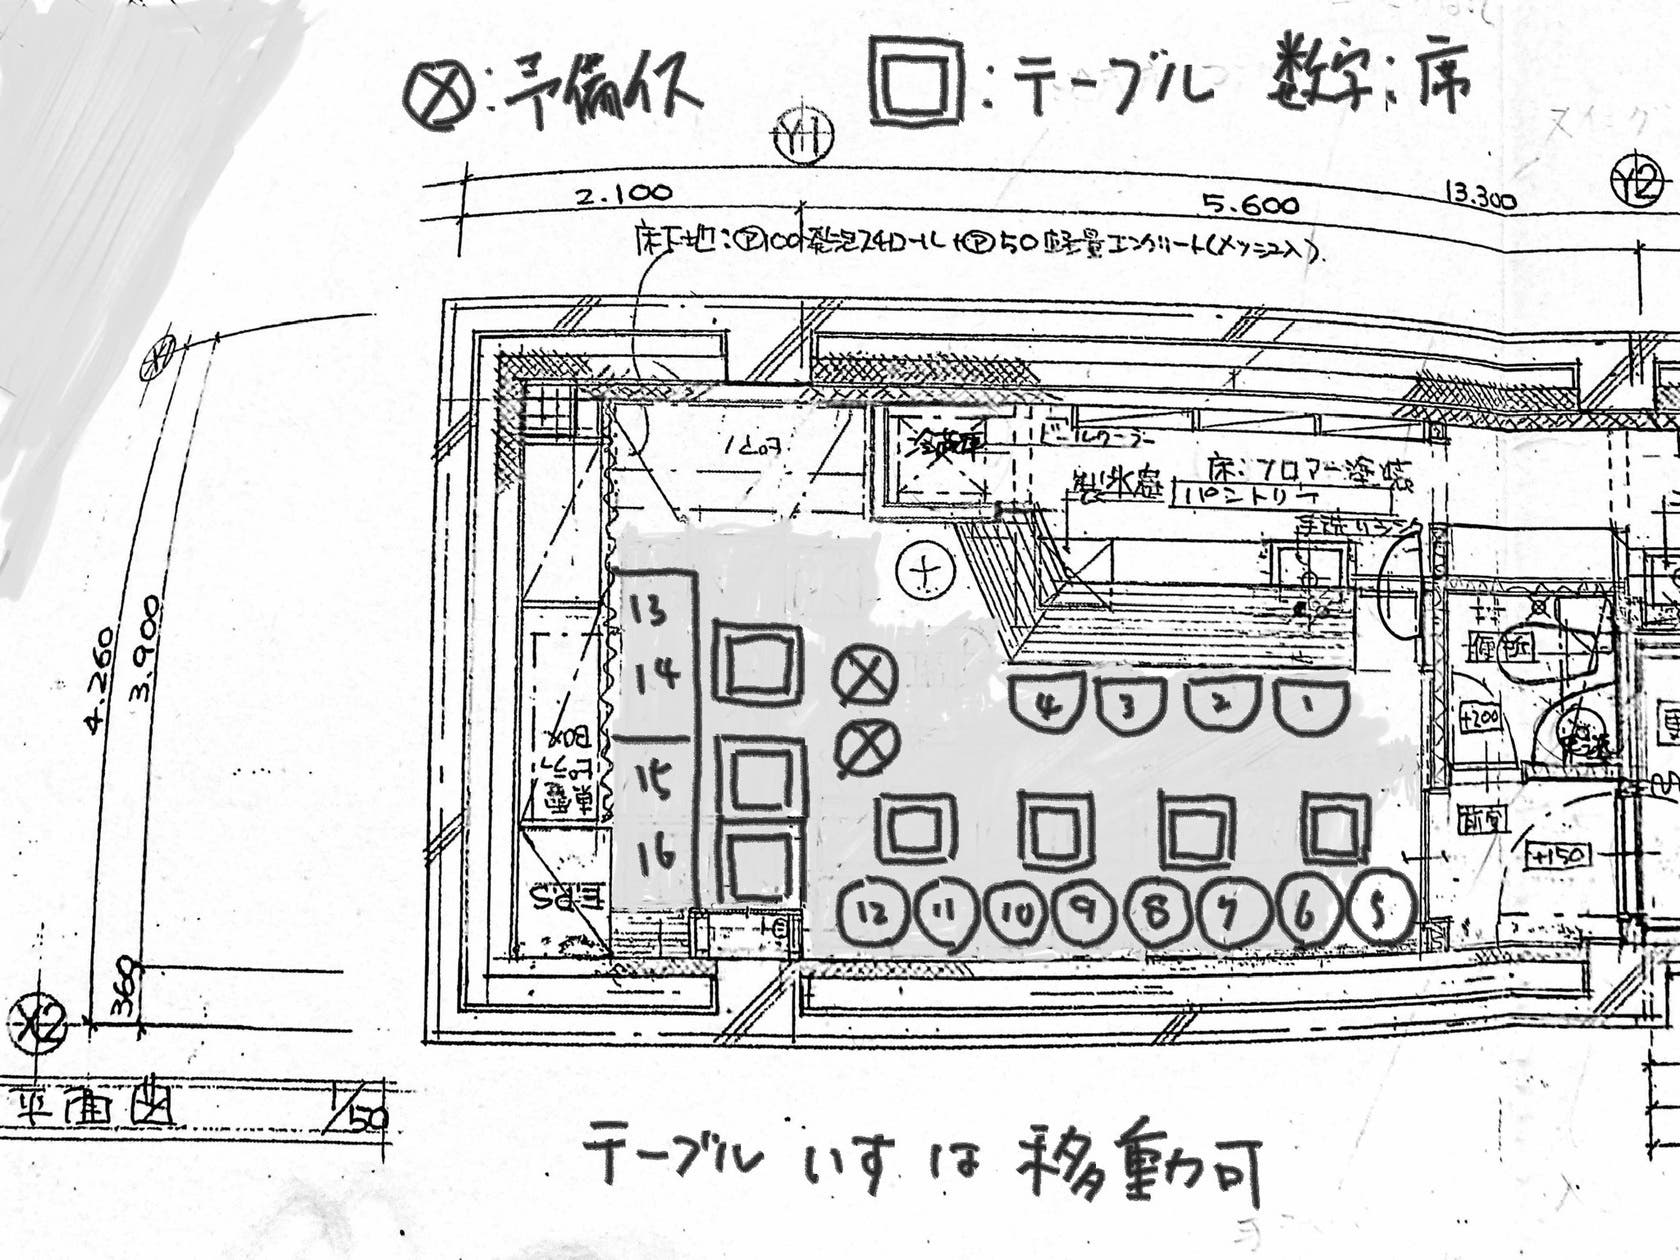 ⊗:予備イス
□:テーブル 数字:席
Y1
Y2
2.100
5.600
13.300
床下地:Ⓟ100発泡スチロール+Ⓟ50軽量コンクリート(メッシュ入).
冷蔵庫
ビールクーラー
製氷庭
床:フロアー塗装
パントリー
手洗
13
14
15
16
4
3
2
1
12
11
10
9
8
7
6
5
BOX
EPS
便所
+200
前室
+150
4.260
3.900
360
X2
平面図 1/50
テーブル いすは 移動可